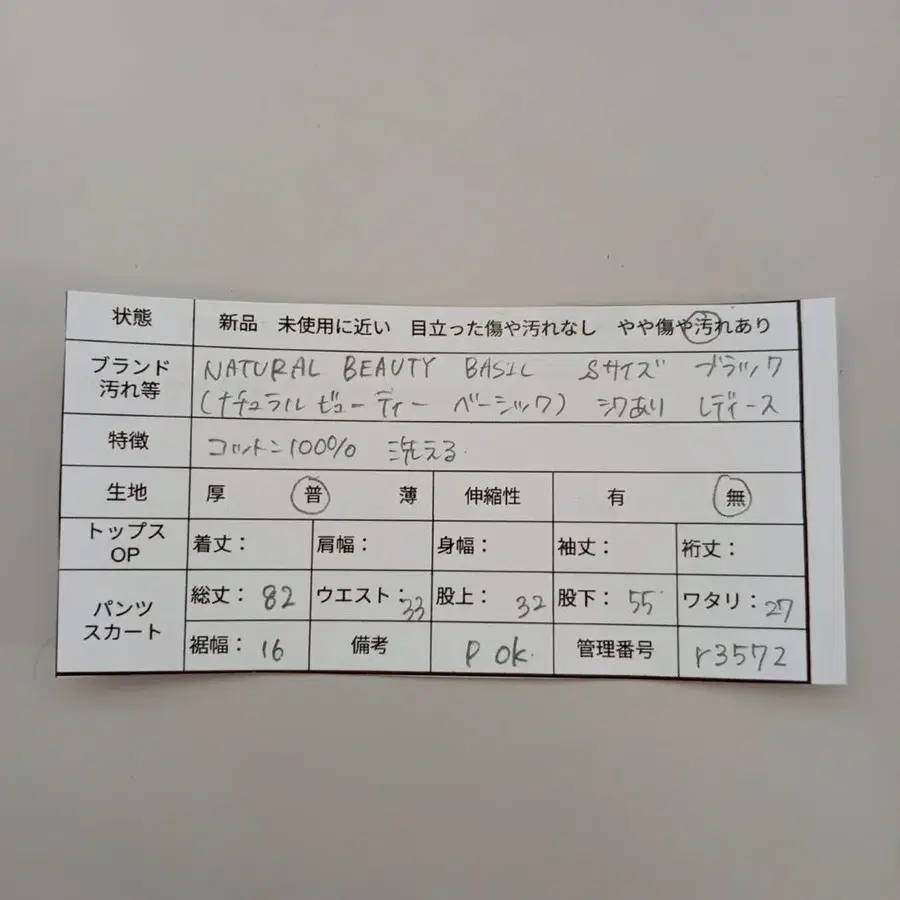 状態 新品 未使用に近い 目立った傷や汚れなし やや傷や汚れあり
ブランド 汚れ等 NATURAL BEAUTY BASIC Sサイズ ブラック
(ナチュラルビューティーベーシック) シワあり レディース
特徴 コットン100% 洗える
生地 厚 普 薄 伸縮性 有 無
トップス OP 着丈: 肩幅: 身幅: 袖丈: 裄丈:
パンツ スカート 総丈: 82 ウエスト: 33 股上: 32 股下: 55 ワタリ: 27
裾幅: 16 備考 P ok. 管理番号 r3572